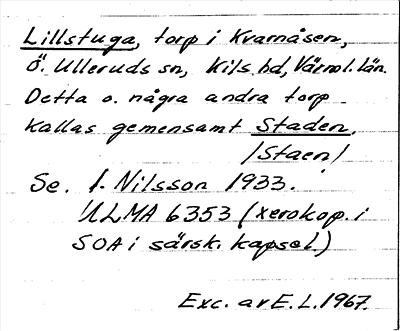 Lillstuga, torp i Kvarnåsen,
Ö. Ulleruds sn, Kils hd, Värml. län.
Detta o. några andra torp
kallas gemensamt Staden.
/Staen/
Se. I. Nilsson 1933.
ULMA 6353 (xerokop. i
SOA i särsk. kapsel.)
Exc. av E. L. 1967.